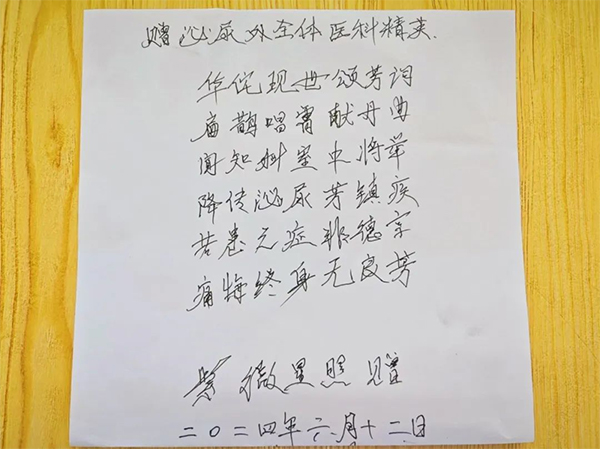 赠泌尿外全体医科精英
华佗现世颂芳词
扁鹊唱霄献丹曲
闻知科室中将举
降传泌尿芳镇疾
若患无症非德宗
痛悔终身无良芳
紫微星照赠
二〇二四年六月十二日